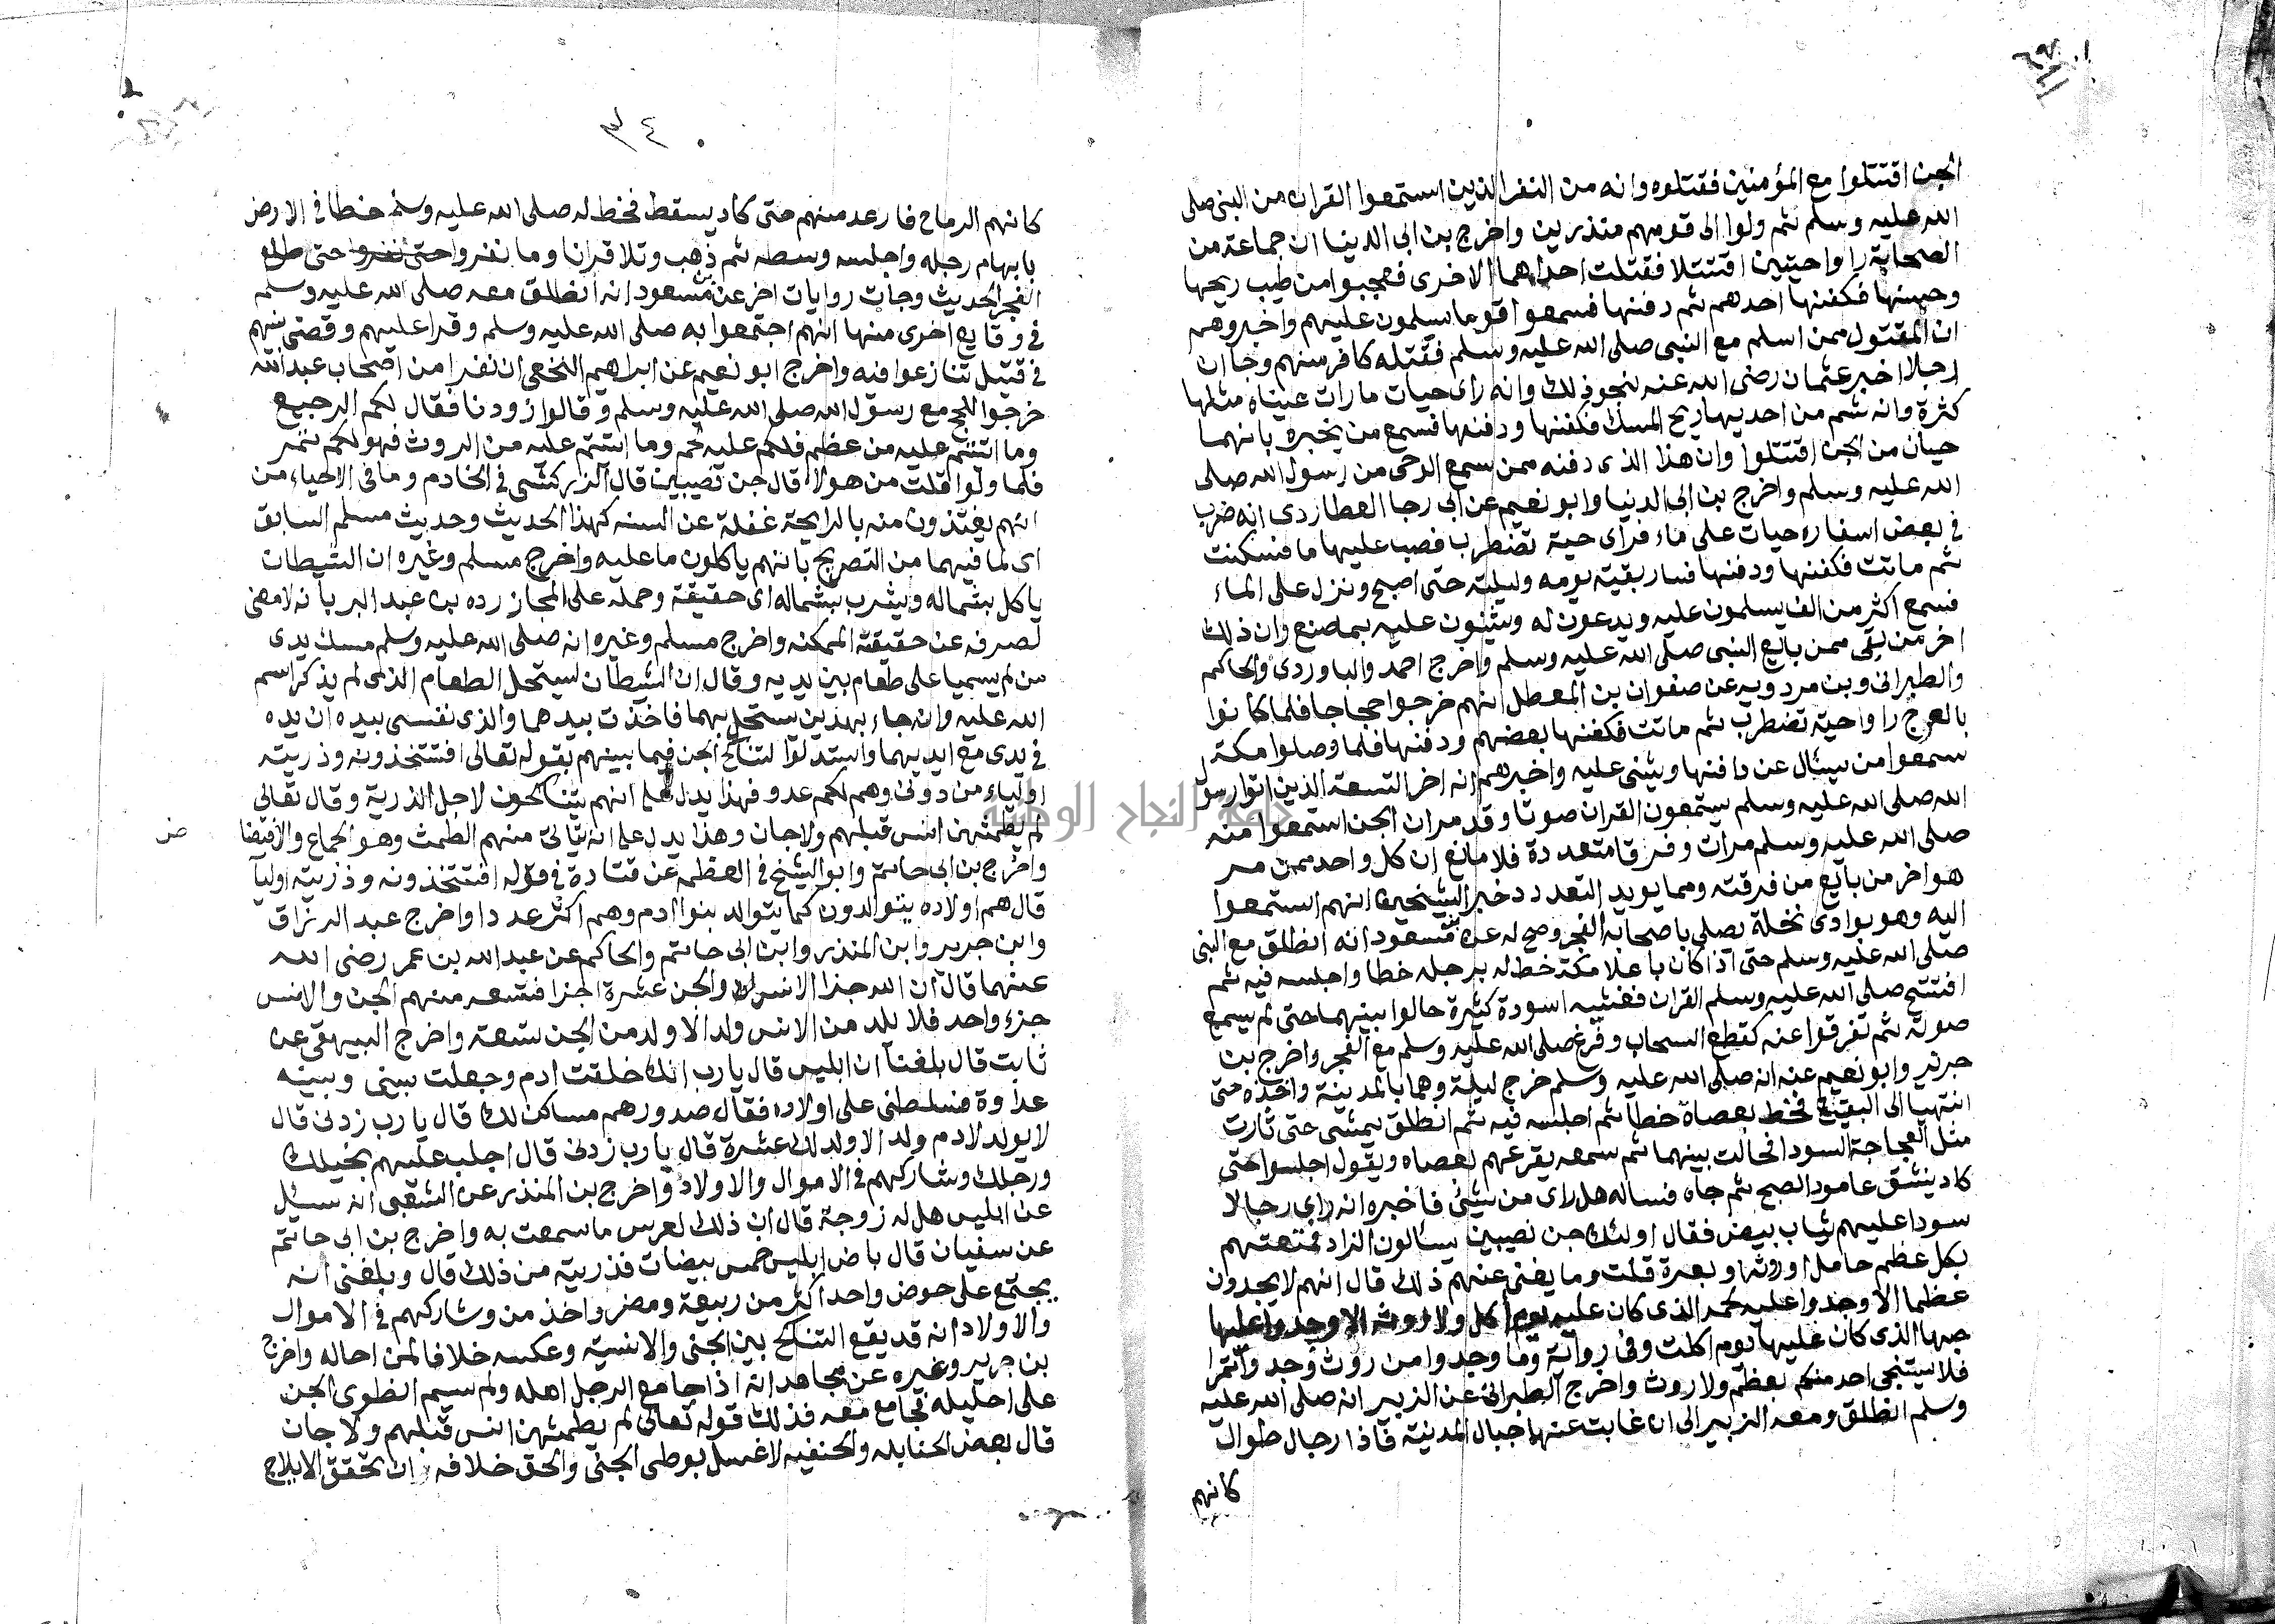 الجن اقتتلوا مع المؤمنين فقتلوه وانه من النفر الذين استمعوا القران من النبي صلى
الله عليه وسلم ثم ولوا الى قومهم منذرين واخرج بن ابي الدنيا ان جماعة من
الصحابة راوا حيتين اقتتلا فقتلت احداهما الاخرى فعجبوا من طيب ريحها
وحسنها فكفنها احدهم ثم دفنها فسمعوا قوما يسلمون عليهم واخبروهم
ان المقتول ممن اسلم مع النبي صلى الله عليه وسلم فقتله كافر منهم وجا ان
رجلا اخبر عثمان رضى الله عنه بنحو ذلك وانه راى حيات ما رات عيناه مثلها
كثرة وانه شم من احديها ريح المسك فكفنها ودفنها فسمع من يخبره بانهما
حيان من الجن اقتتلوا وان هذا الذى دفنه ممن سمع الوحى من رسول الله صلى
الله عليه وسلم واخرج بن ابى الدنيا وابو نعيم عن ابى رجا العطاردى انه ضرب
فى بعض اسفاره حيات على ماء فراى حية تضطرب فصب عليها ما فسكنت
ثم ماتت فكفنها ودفنها فسار بقية يومه وليلته حتى اصبح ونزل على الماء
فسمع اكثر من الف يسلمون عليه ويدعون له ويثنون عليه بما صنع وان ذلك
اخر من بقى ممن بايع النبى صلى الله عليه وسلم واخرج احمد والباوردى والحاكم
والطبرانى وبن مردويه عن صفوان بن المعطل انهم خرجوا حجاجا فلما كانوا
بالعرج راوا حية تضطرب ثم ماتت فكفنها بعضهم ودفنها فلما وصلوا مكة
سمعوا من يسئال عن دافنها ويثنى عليه واخبرهم انه اخر التسعة الذين اتوا رسول
الله صلى الله عليه وسلم يستمعون القران صوتا وقد مر ان الجن استمعوا منه
صلى الله عليه وسلم مرات وفرقا متعددة فلا مانع ان كل واحد ممن مر
هو اخر من بايع من فرقته ومما يويد التعدد خبر الشيخين انهم استمعوا
اليه وهو بوادى نخلة يصلى باصحابه الفجر وصح له عن بن مسعود انه انطلق مع النبى
صلى الله عليه وسلم حتى اذا كان باعلا مكة خط له برجله خطا واجلسه فيه ثم
افتتح صلى الله عليه وسلم القران فغشيه اسودة كثيرة حالوا بينهما حتى لم يسمع
صوته ثم تفرقوا عنه كقطع السحاب وفرغ صلى الله عليه وسلم مع الفجر واخرج بن
جرير وابو نعيم عنه انه صلى الله عليه وسلم خرج ليلة وهما بالمدينة واخذه حتى
انتهيا الى البقيع فخط بعصاة خطا ثم اجلسه فيه ثم انطلق يمشى حتى ثارت
مثل العجاجة السودا فحالت بينهما ثم سمعه يقرعهم بعصاه ويقول اجلسوا حتى
كاد ينشق عامود الصبح ثم جاه فساله هل راى من شئ فاخبره انه راى رجالا
سودا عليهم ثياب بيض فقال اولئك جن نصيبين يسالون الزاد فمتعتهم
بكل عظم حامل او روثه او بعرة قلت وما يغنى عنهم ذلك قال انهم لا يجدون
عظما الا وجدوا عليه لحمه الذى كان عليه يوم اكل ولا روثه الا وجدوا عليها
حبها الذى كان عليها يوم اكلت وفى رواية وما وجدوا من روث وجدوا تمرا
فلا يستنجى احد منكم بعظم ولا روث واخرج الطبرانى عن الزبير انه صلى الله عليه
وسلم انطلق ومعه الزبير الى ان غابت عنها جبال المدينة فاذا رجال طوال
كانهم
٣٤
كانهم الرماح فارعد منهم حتى كاد يسقط فخط له صلى الله عليه وسلم خطا فى الارض
بابهام رجله واجلسه وسطه ثم ذهب وتلا قرانا وما نفروا حتى نفروا حتى طلع
الفجر الحديث وجات روايات اخر عن بن مسعود انه انطلق معه صلى الله عليه وسلم
فى وقايع اخرى منها انهم اجتمعوا به صلى الله عليه وسلم وقرا عليهم وقضى بينهم
فى قتيل تنازعوا فيه واخرج ابو نعيم عن ابراهيم النخعى ان نفرا من اصحاب عبد الله
خرجوا للحج مع رسول الله صلى الله عليه وسلم وقالوا زودنا فقال لكم الرجيع
وما اتيتم عليه من عظم فلكم عليه لحم وما اتيتم عليه من الروث فهو لكم تمر
فلما ولوا قلت من هولا قال جن نصيبين قال الزركشى فى الخادم وما فى الاحياء من
انهم يغتذون منه بالرايحة غفلة عن السنه كهذا الحديث وحديث مسلم السابق
اى لما فيهما من التصريح بانهم ياكلون ما عليه واخرج مسلم وغيره ان الشيطان
ياكل بشماله ويشرب بشماله اى حقيقة وحمله على المجاز رده بن عبد البر بانه لا معنى
لصرفه عن حقيقته الممكنه واخرج مسلم وغيره انه صلى الله عليه وسلم مسك يدى
من لم يسميا على طعام بين يديه وقال ان الشيطان ليستحل الطعام الذى لم يذكر اسم
الله عليه وان جاء بهذين يستحل بهما فاخذت بيدهما والذى نفسى بيده ان يده
فى يدى مع ايديهما واستدلوا لتناكح الجن فيما بينهم بقوله تعالى افتتخذونه وذريته
اولياء من دونى وهم لكم عدو فهذا يدل على انهم يتناكحون لاجل الذرية وقال تعالى
لم يطمثهن انس قبلهم ولا جان وهذا يدل على انه يتاتى منهم الطمث وهو الجماع والافتضا
ض
واخرج بن ابى حاتم وابو الشيخ فى العظمه عن قتادة فى قوله افتتخذونه وذريته اوليا
قال هم اولاده يتوالدون كما يتوالد بنوا ادم وهم اكثر عددا واخرج عبد الرزاق
وابن جرير وابن المنذر وابن ابى حاتم والحاكم عن عبد الله بن عمر رضى الله
عنهما قال ان الله جزا الانس والجن عشرة اجزا فتسعه منهم الجن والانس
جزء واحد فلا يلد من الانس ولد الا ولد من الجن تسعة واخرج البيهقى عن
ثابت قال بلغنا ان ابليس قال يارب انك خلقت ادم وجعلت بينى وبينه
عداوة فسلطنى على اولاده فقال صدورهم مساكن لك قال يارب زدنى قال
لا يولد لادم ولد الا ولد لك عشرة قال يارب زدنى قال اجلب عليهم بخيلك
ورجلك وشاركهم فى الاموال والاولاد واخرج بن المنذر عن الشعبى انه سئل
عن ابليس هل له زوجة قال ان ذلك لعرس ما سمعت به واخرج بن ابى حاتم
عن سفيان قال باض ابليس خمس بيضات فذريته من ذلك قال وبلغنى انه
يجتمع على حوض واحد اكثر من ربيعة ومضر واخذ من وشاركهم فى الاموال
والاولاد انه قد يقع التناكح بين الجنى والانسية وعكسه خلافا لمن احاله واخرج
بن جرير وغيره عن مجاهد انه اذا جامع الرجل اهله ولم يسم انطوى الجن
على احليله فجامع معه فذلك قوله تعالى لم يطمثهن انس قبلهم ولا جان
قال بعض الحنابله والحنفيه لا غسل بوطى الجنى والحق خلافه ان تحقق الايلاج
جامعة النجاح الوطنية